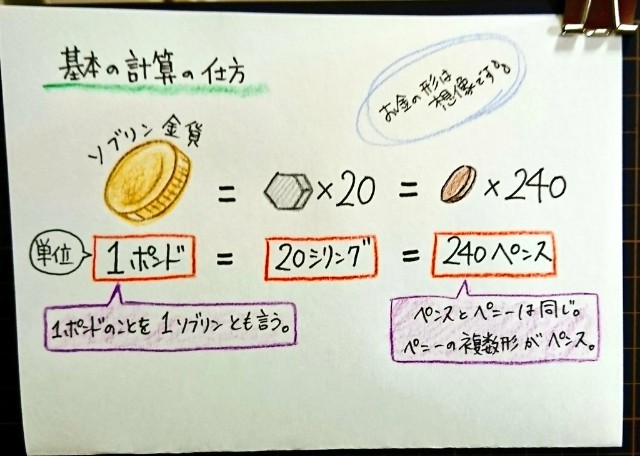 基本の計算の仕方
お金の形は
想像です。
ソブリン金貨
= ×20 = ×240
単位 1ポンド = 20シリング = 240ペンス
1ポンドのことを1ソブリンとも言う。
ペンスとペニーは同じ。
ペニーの複数形がペンス。